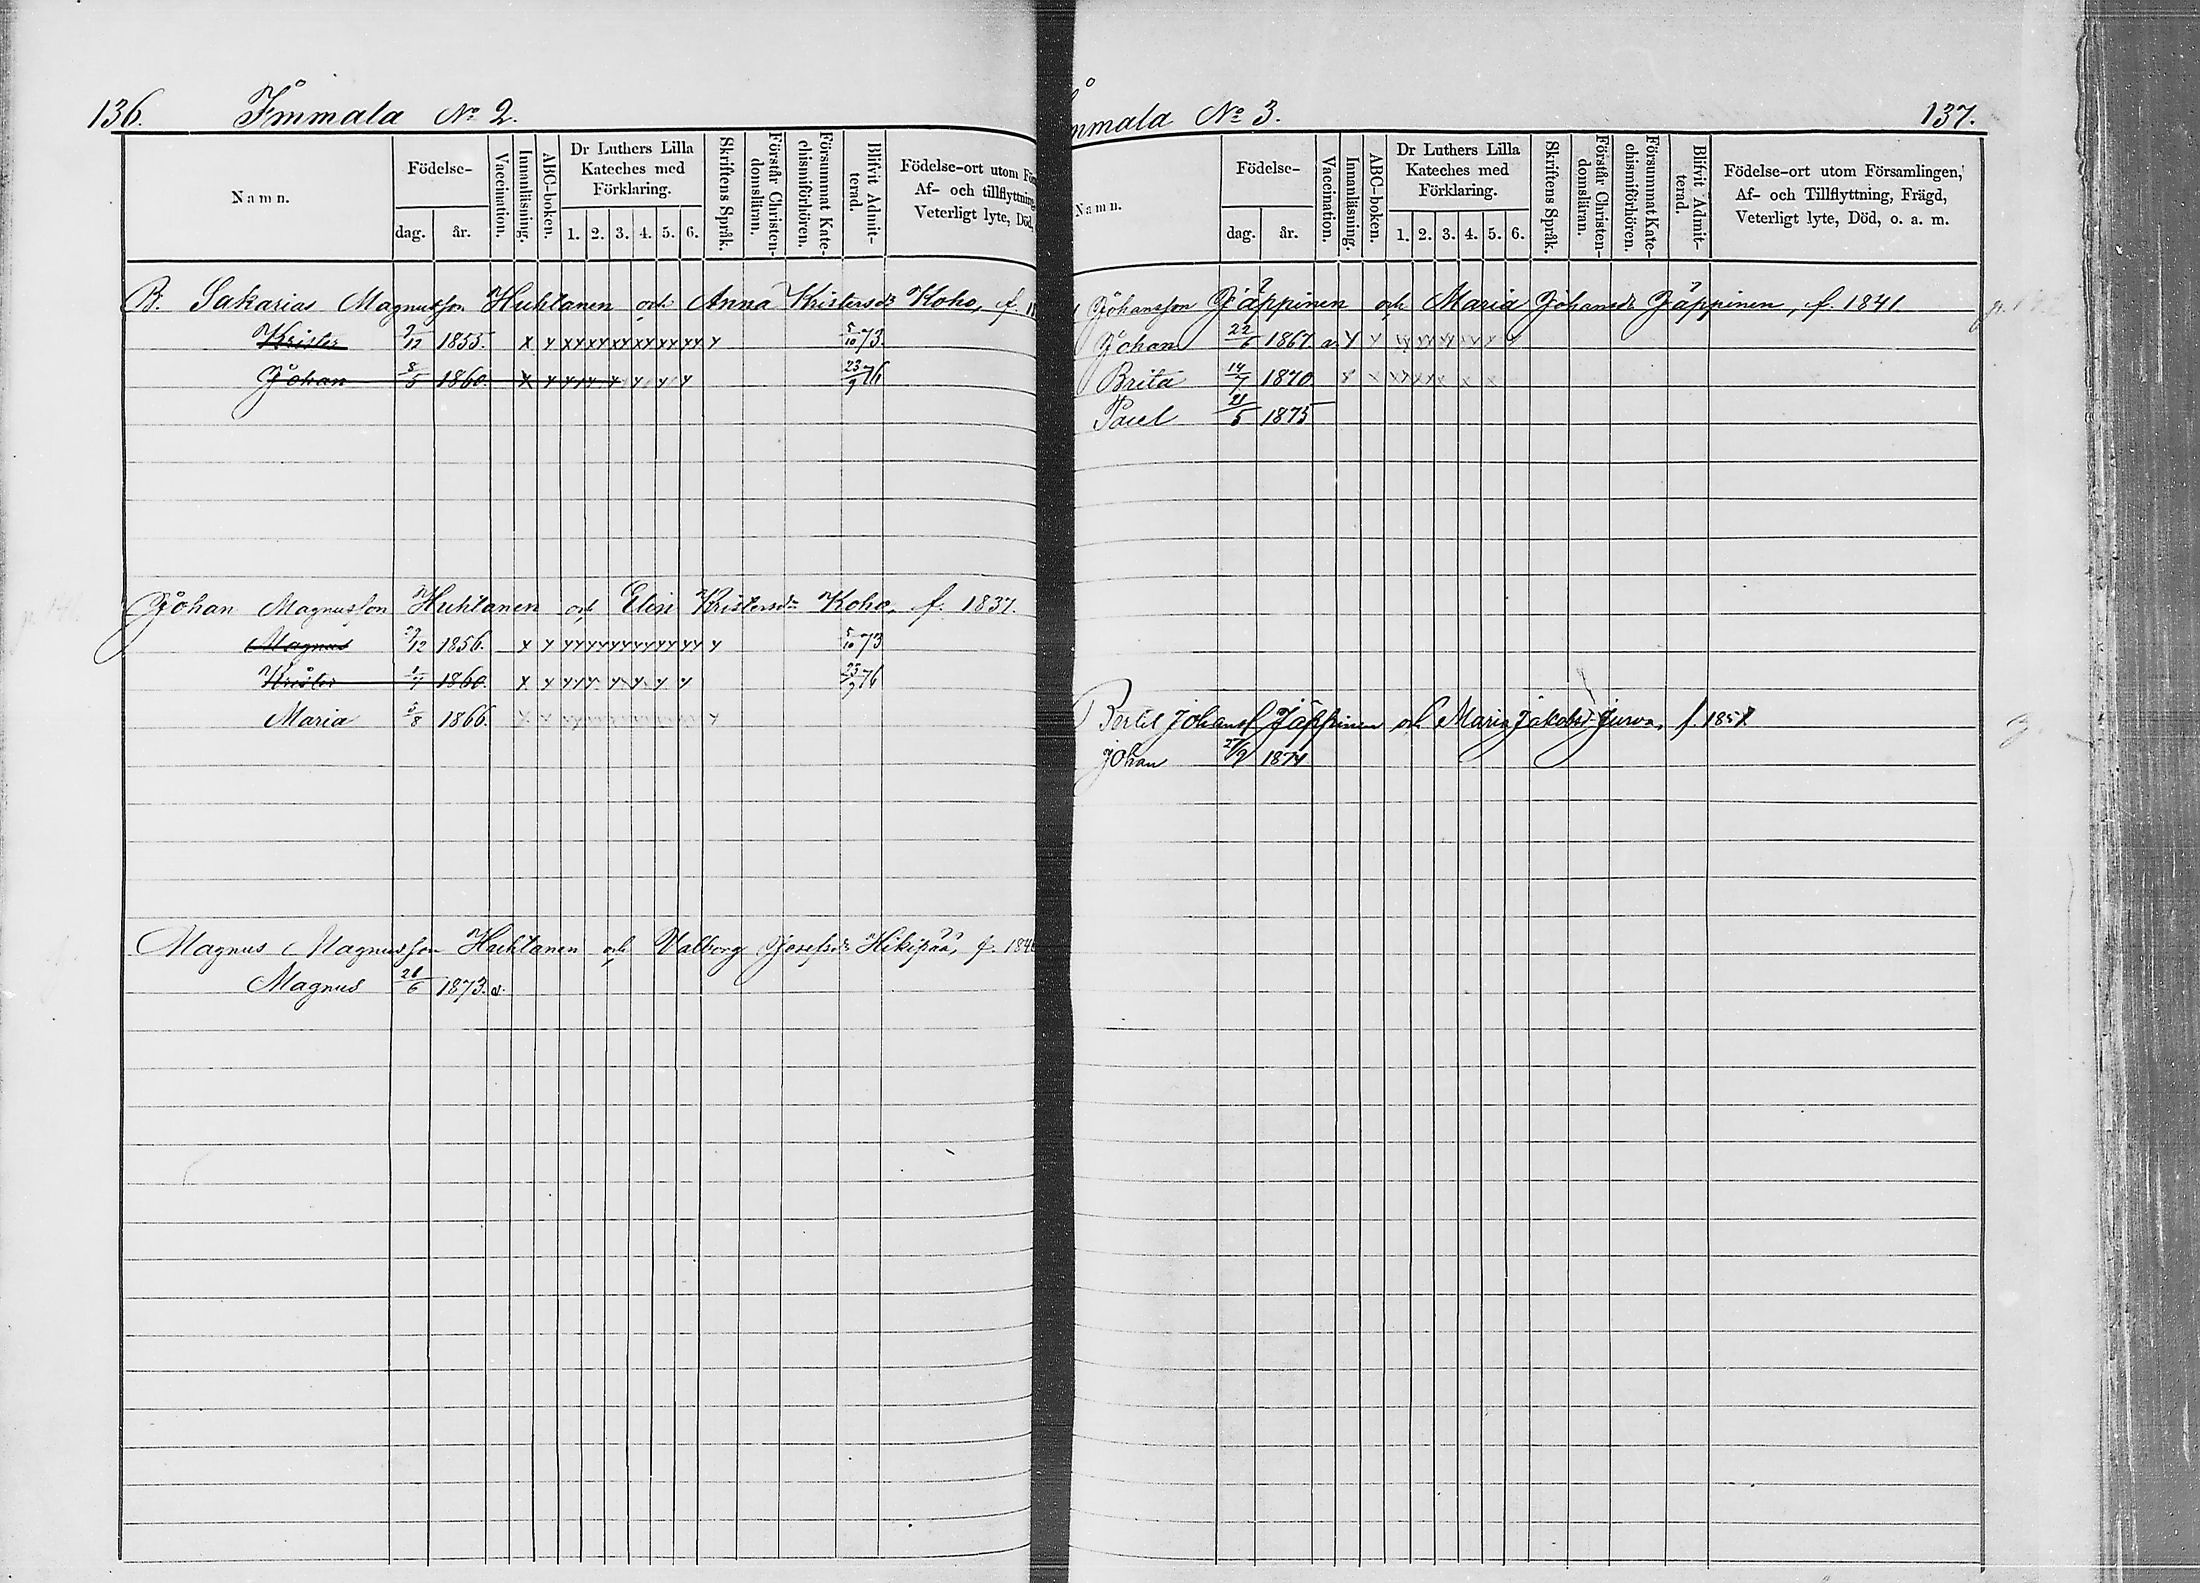 136. Immala No 2.
Namn.
Födelse-
dag.
år.
Vaccination.
Innanläsning.
ABC-boken.
Dr Luthers Lilla
Kateches med
Förklaring.
1. 2. 3. 4. 5. 6.
Skriftens Språk.
Förstår Christen-
domsläran.
Försummat Kate-
chismiförhören.
Blifvit Admit-
terad.
Födelse-ort utom För
Af- och tillflyttning
Veterligt lyte, Död,
B. Sakarias Magnusson Huhtanen och Anna Kristersdr Koho, f. 18
Krister 9/12 1855. x y xx xy xy xy xy xy y 5/10 73.
Johan 8/5 1860. x y y y y y y y 23/9 76
Johan Magnusson Huhtanen och Elin Kristersdr Koho, f. 1837.
Magnus 1856. x y yy yy yy yy yy yy y 5/10 73
Krister 1860. x y yy y y y y y 23/9 76
Maria 5/8 1866.
Magnus Magnusson Huhtanen och Valborg Josefsdr Hikipää, f. 184
Magnus 26/6 1873. v.
mmala No 3. 137.
Namn.
Födelse-
dag.
år.
Vaccination.
Innanläsning.
ABC-boken.
Dr Luthers Lilla
Kateches med
Förklaring.
1. 2. 3. 4. 5. 6.
Skriftens Språk.
Förstår Christen-
domsläran.
Försummat Kate-
chismiförhören.
Blifvit Admit-
terad.
Födelse-ort utom Församlingen,
Af- och Tillflyttning, Frägd,
Veterligt lyte, Död, o. a. m.
Johansson Jäppinen och Maria Johansdr Jäppinen, f. 1841.
Johan 22/6 1867. v. y
Brita 14/7 1870
Paul 21/5 1875
Bertil Johanss Jäppinen och Maria Jakobsd Jurva, f. 1851.
Johan 27/9 1874